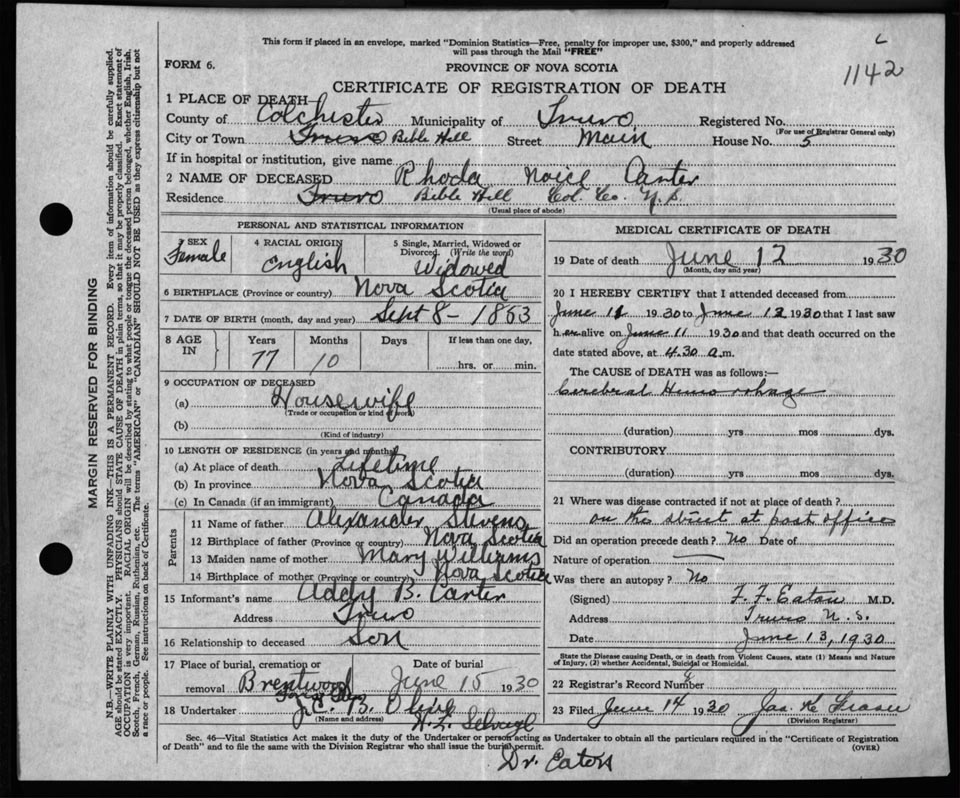 This form if placed in an envelope, marked "Dominion Statistics–Free, penalty for improper use, $300," and properly addressed
will pass through the Mail "FREE"
FORM 6.
PROVINCE OF NOVA SCOTIA
1142
CERTIFICATE OF REGISTRATION OF DEATH
1 PLACE OF DEATH—
County of Colchester Municipality of Truro Registered No.
(For use of Registrar General only)
City or Town Truro Bible Hill Street Main House No. 5
If in hospital or institution, give name
2 NAME OF DECEASED Rhoda Carter
Residence Truro Bible Hill Col. Co. N.S.
(Usual place of abode)
PERSONAL AND STATISTICAL INFORMATION
3 SEX Female
4 RACIAL ORIGIN English
5 Single, Married, Widowed or
Divorced. (Write the word)
Widowed
6 BIRTHPLACE (Province or country) Nova Scotia
7 DATE OF BIRTH (month, day and year) Sept 8 - 1853
8 AGE IN Years Months Days If less than one day,
77 10 hrs. or min.
9 OCCUPATION OF DECEASED
(a) Housewife
(Trade or occupation or kind of work)
(b)
(Kind of industry)
10 LENGTH OF RESIDENCE (in years and months)
(a) At place of death Lifetime
(b) In province Nova Scotia
(c) In Canada (if an immigrant) Canada
Parents
11 Name of father Alexander Stevens
12 Birthplace of father (Province or country) Nova Scotia
13 Maiden name of mother Mary Williams
14 Birthplace of mother (Province or country) Nova Scotia
15 Informant's name Addy B. Carter
Address Truro
16 Relationship to deceased Son
17 Place of burial, cremation or Date of burial
removal Brentwood June 15 1930
18 Undertaker J.C. B.
(Name and address)
MEDICAL CERTIFICATE OF DEATH
19 Date of death June 12 1930
(Month, day and year)
20 I HEREBY CERTIFY that I attended deceased from
June 11 1930 to June 12 1930 that I last saw
h er alive on June 11 1930 and that death occurred on
the date stated above, at 4.30 a.m.
The CAUSE of DEATH was as follows:—
Cerebral Hemorrhage
(duration) yrs mos dys.
CONTRIBUTORY
(duration) yrs mos dys.
21 Where was disease contracted if not at place of death?
on the street at post office
Did an operation precede death? No Date of
Nature of operation
Was there an autopsy? No
(Signed) F. F. Eaton M.D.
Address Truro N.S.
Date June 13, 1930
State the Disease causing Death, or in death from Violent Causes, state (1) Means and Nature
of Injury, (2) whether Accidental, Suicidal or Homicidal.
22 Registrar's Record Number
23 Filed June 14 1930 Jas. K Fraser
(Division Registrar)
Sec. 46—Vital Statistics Act makes it the duty of the Undertaker or person acting as Undertaker to obtain all the particulars required in the "Certificate of Registration
of Death" and to file the same with the Division Registrar who shall issue the burial permit.
(OVER)
Dr. Eaton
MARGIN RESERVED FOR BINDING
N.B.—WRITE PLAINLY WITH UNFADING INK—THIS IS A PERMANENT RECORD. Every item of information should be carefully supplied.
AGE should be stated EXACTLY. PHYSICIANS should STATE CAUSE OF DEATH in plain terms, so that it may be properly classified. Exact statement of
OCCUPATION is very important. RACIAL ORIGIN will be described by stating to what people or tongue the deceased person belonged, whether English, Irish,
Scotch, French, German, Russian, Ruthenian, etc. The terms "AMERICAN" or "CANADIAN" SHOULD NOT BE USED as they express citizenship but not
a race or people. See instructions on back of Certificate.